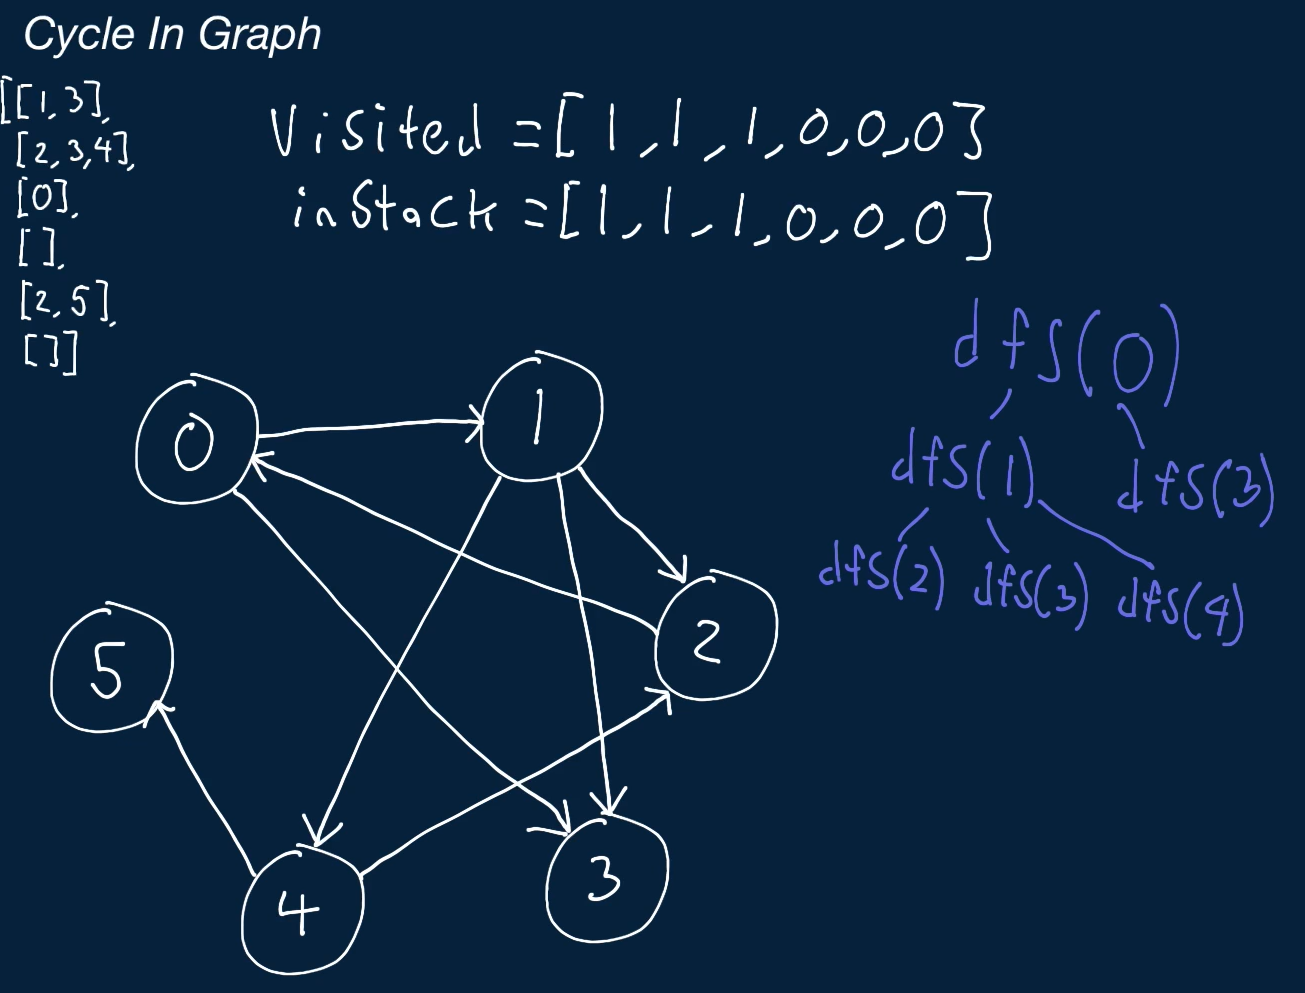 Cycle In Graph
[[1,3],
[2,3,4],
[0],
[],
[2,5],
[]]
Visited = [1,1,1,0,0,0]
inStack = [1,1,1,0,0,0]
dfs(0)
dfs(1) dfs(3)
dfs(2) dfs(3) dfs(4)
0
1
2
5
3
4